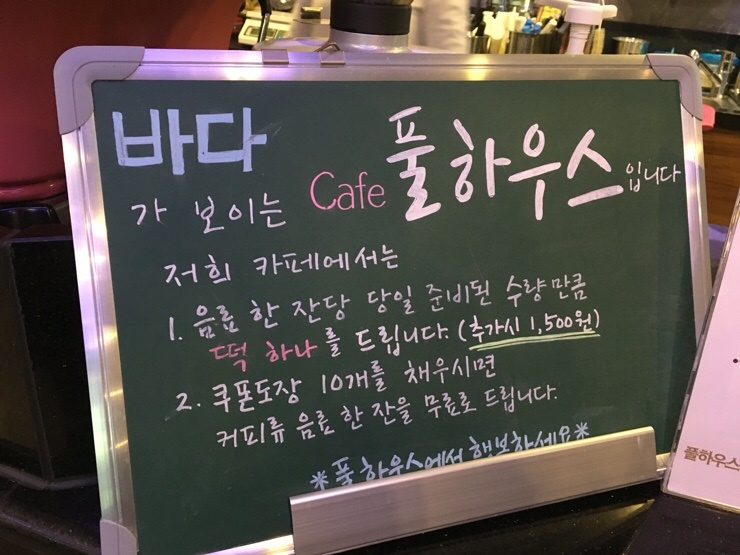 바다
가 보이는 Cafe 풀하우스입니다
저희 카페에서는
1. 음료 한 잔당 당일 준비된 수량만큼
떡 하나를 드립니다. (추가시 1,500원)
2. 쿠폰도장 10개를 채우시면
커피류 음료 한 잔을 무료로 드립니다.
*풀하우스에서 행복하세요*
풀하우스